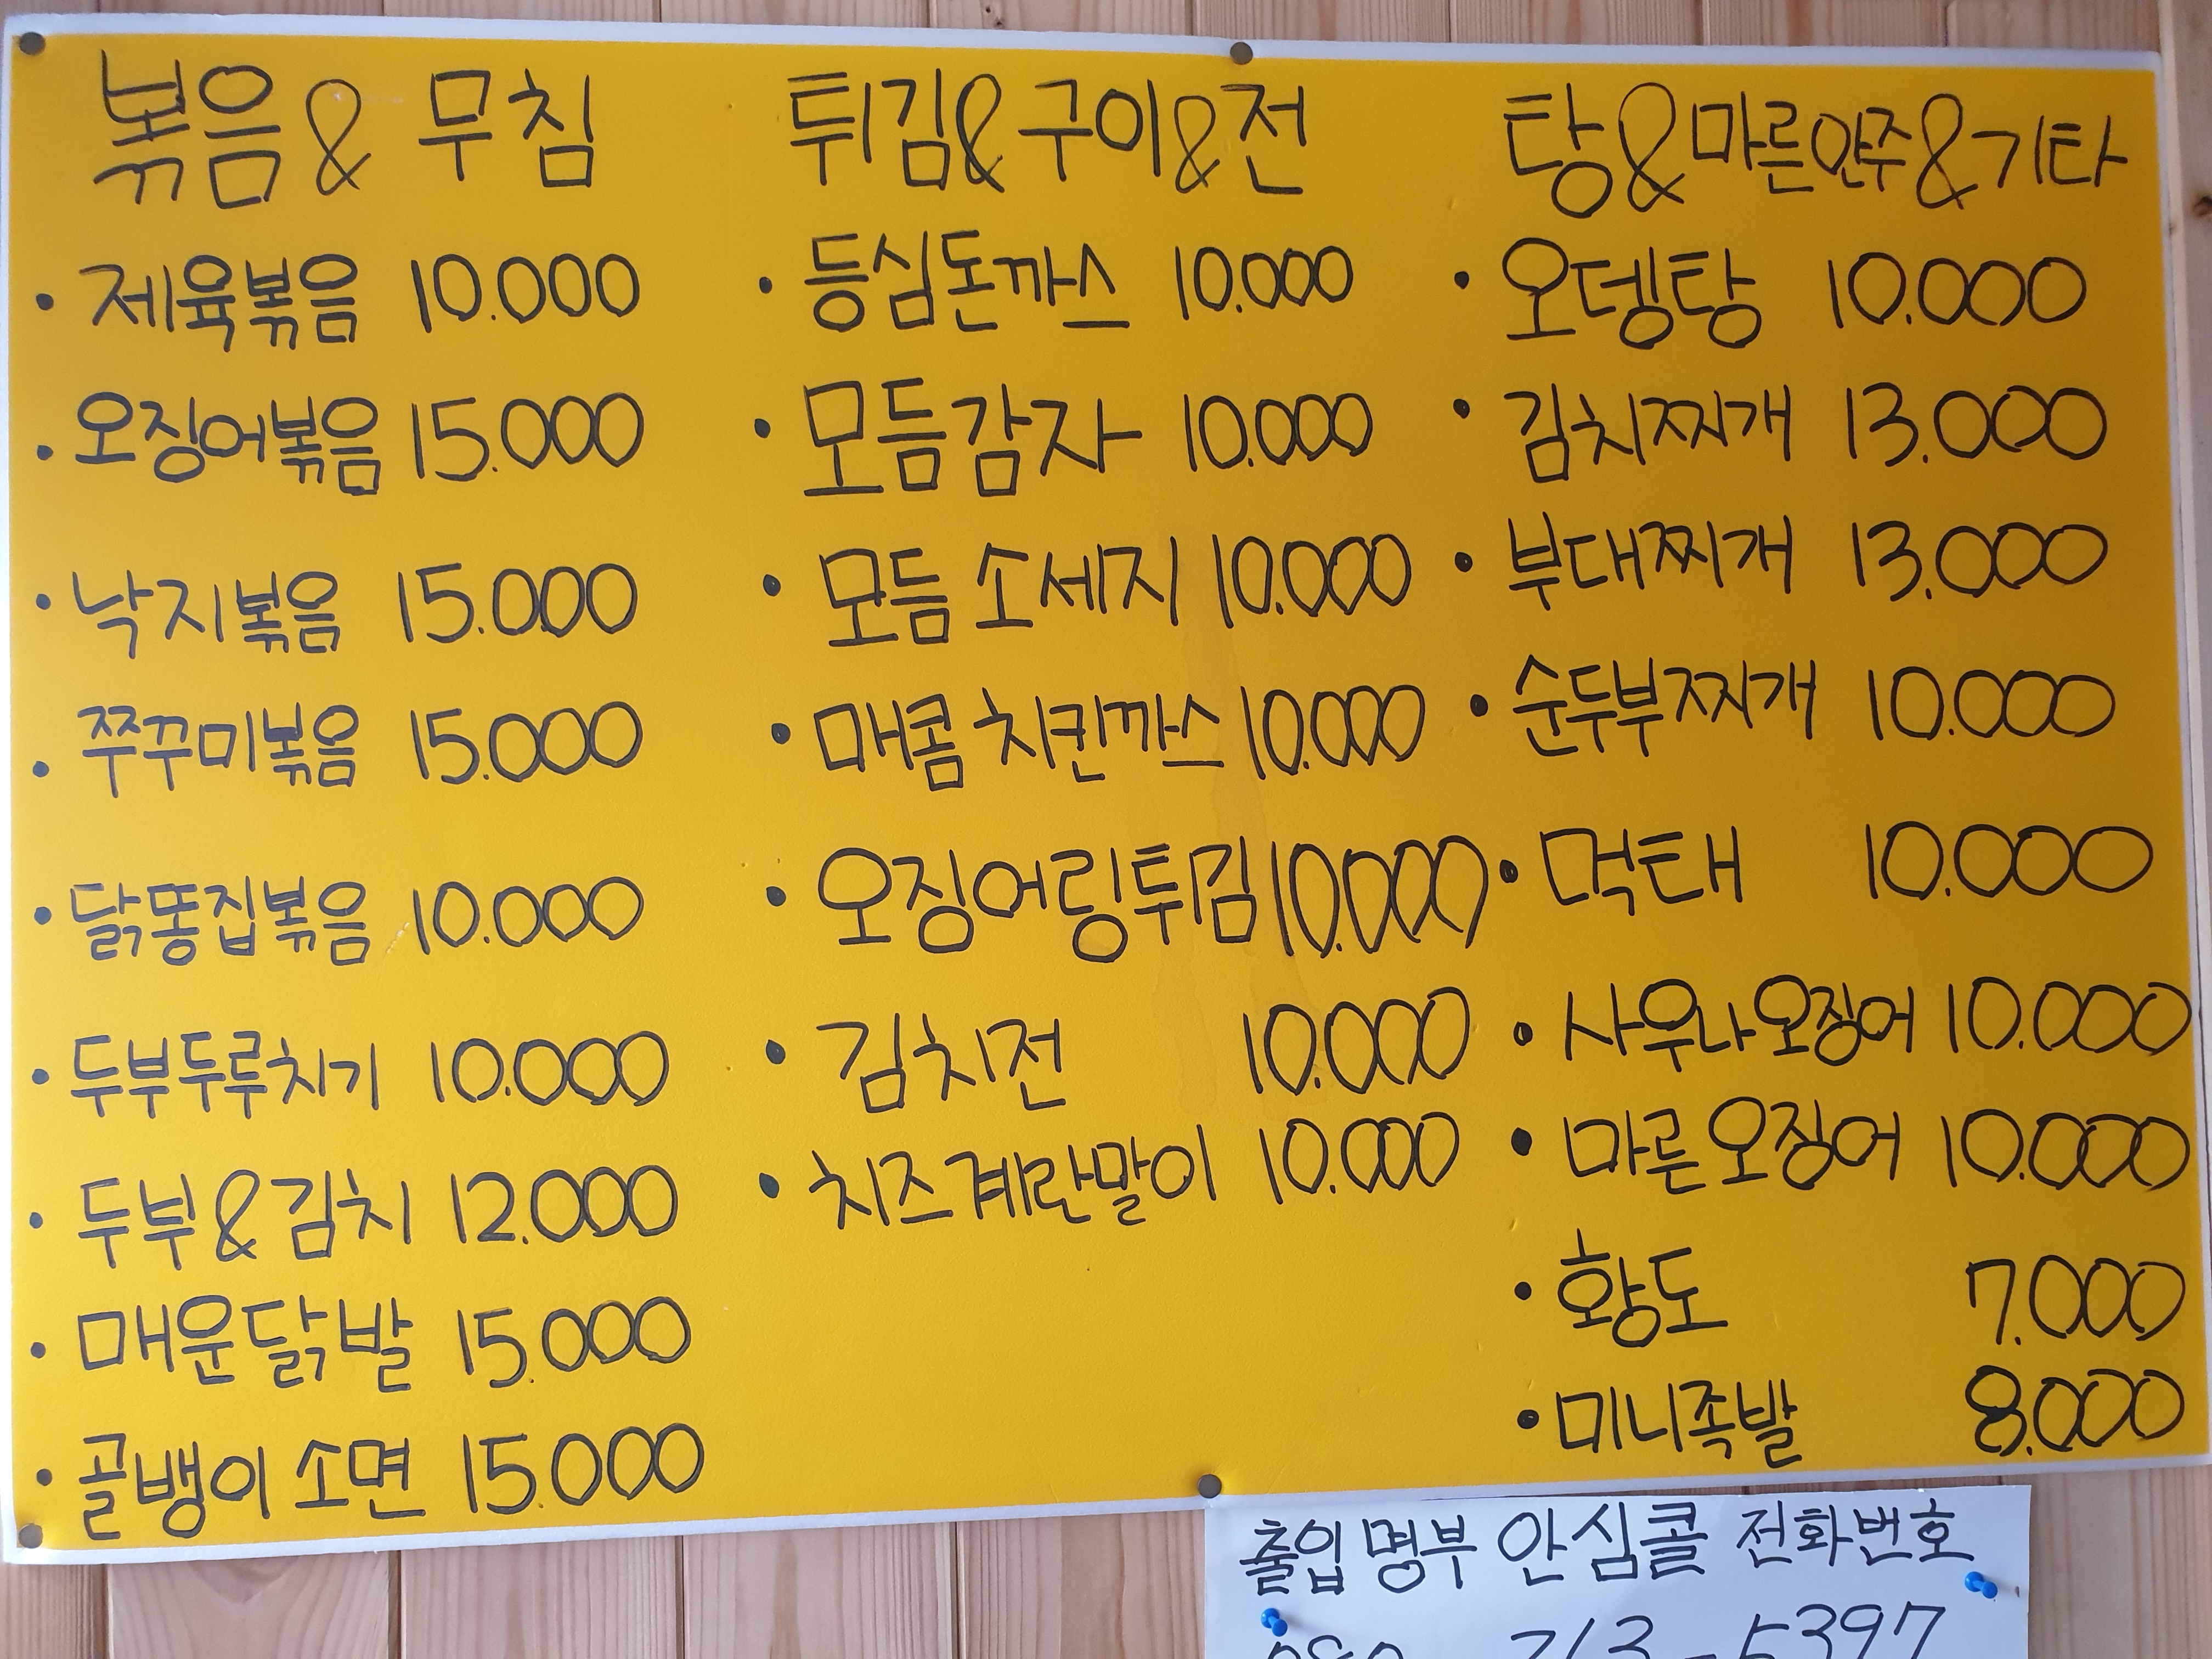 볶음 & 무침
· 제육볶음 10.000
· 오징어볶음 15.000
· 낙지볶음 15.000
· 쭈꾸미볶음 15.000
· 닭똥집볶음 10.000
· 두부두루치기 10.000
· 두부&김치 12.000
· 매운닭발 15.000
· 골뱅이 소면 15.000
튀김&구이&전
· 등심돈까스 10.000
· 모듬감자 10.000
· 모듬 소세지 10.000
· 매콤 치킨까스 10.000
· 오징어링튀김 10.000
· 김치전 10.000
· 치즈계란말이 10.000
탕&마른안주&기타
· 오뎅탕 10.000
· 김치찌개 13.000
· 부대찌개 13.000
· 순두부찌개 10.000
· 먹태 10.000
· 사우나오징어 10.000
· 마른오징어 10.000
· 황도 7.000
· 미니족발 8.000
출입명부 안심콜 전화번호
5397